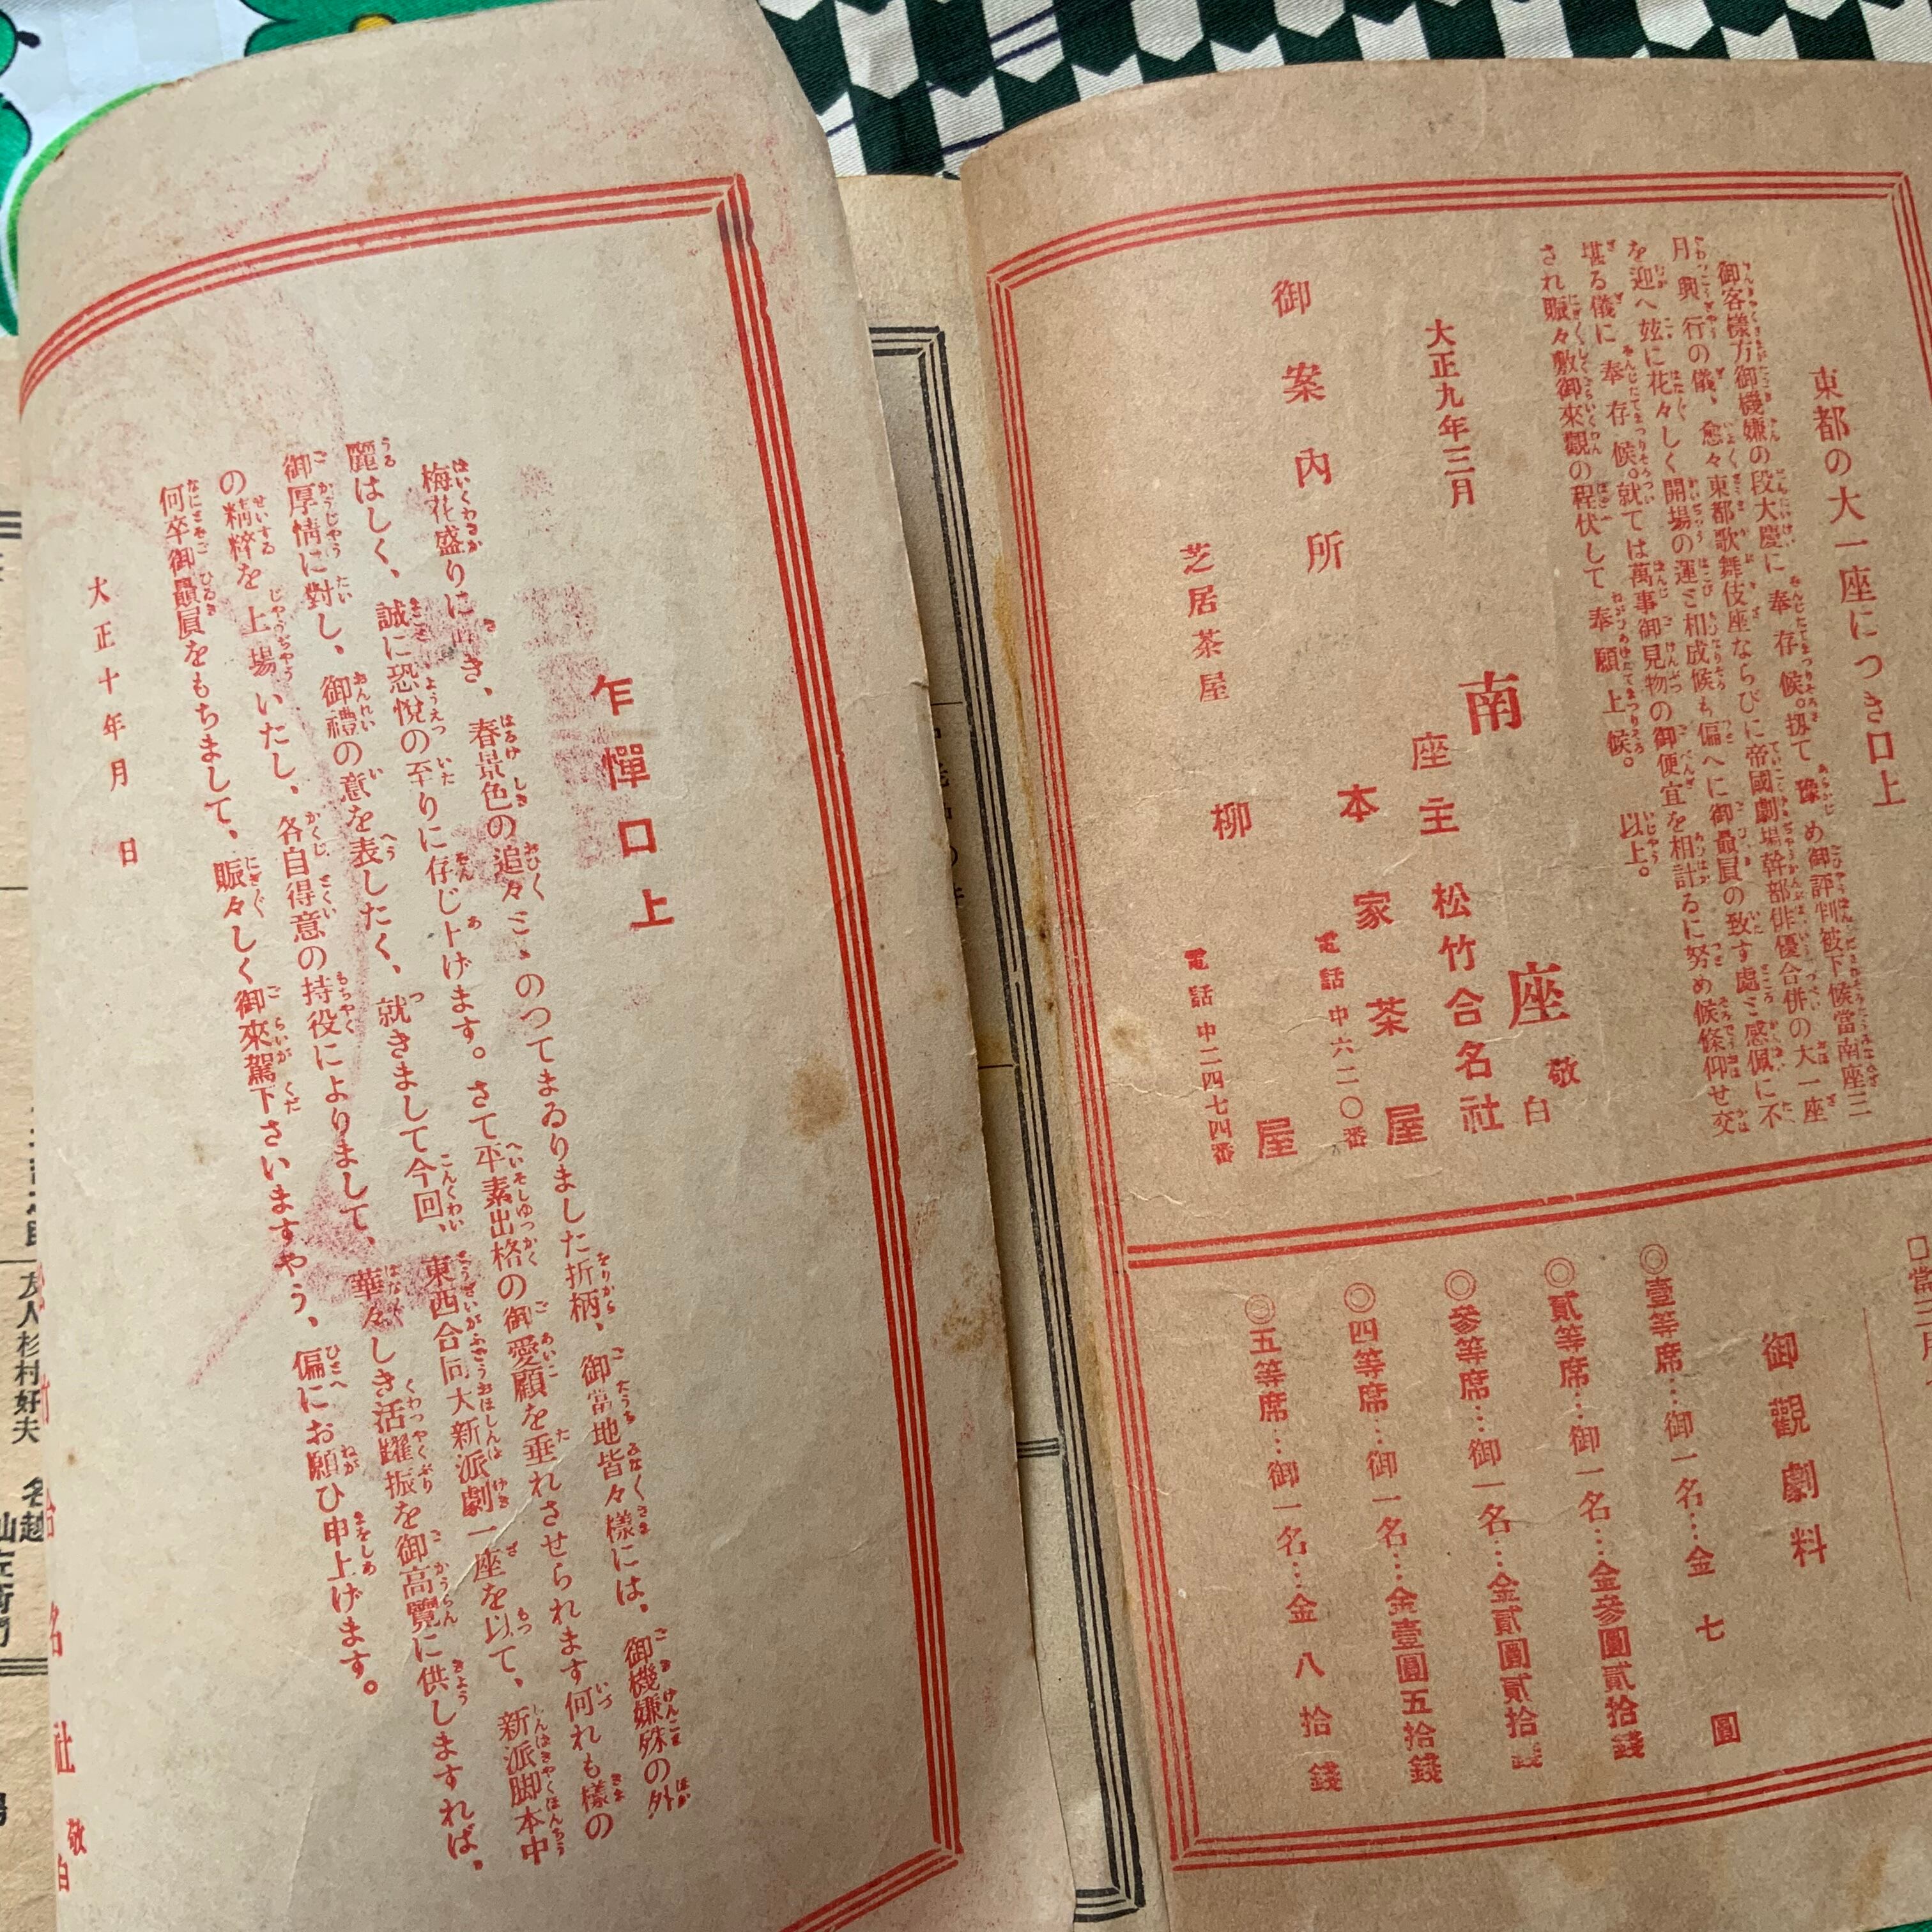 東都の大一座につき口上
御客樣方御機嫌の段大慶に奉存候。扨て豫め御評判被下候當南座三
月興行の儀、愈々東都歌舞伎座ならびに帝國劇場幹部俳優合併の大一座
を迎へ玆に花々しく開場の運ミ相成候も偏へに御贔屓の致す處ミ感佩に不
堪る儀に奉存候。就ては萬事御見物の御便宜を相計るに努め候條仰せ交
され賑々敷御來觀の程伏して奉願上候。 以上。
大正九年三月
南座 敬白
座主 松竹合名社
御案内所
本家茶屋
電話 中六二〇番
芝居茶屋
柳屋
電話 中二四七四番
御觀劇料
◎壹等席…御一名…金七圓
◎貳等席…御一名…金參圓貳拾錢
◎參等席…御一名…金貳圓貳拾錢
◎四等席…御一名…金壹圓五拾錢
◎五等席…御一名…金八拾錢
乍憚口上
梅花盛りにさき、春景色の追々ミ、のつてまゐりました折柄、御當地皆々樣には、御機嫌殊の外
麗はしく、誠に恐悅の至りに存じ上げます。さて平素出格の御愛顧を垂れさせられます何れも樣の
御厚情に對し、御禮の意を表したく、就きまして今回、東西合同大新派劇一座を以て、新派脚本中
の精粹を上場いたし、各自得意の持役によりまして、華々しき活躍振を御高覽に供しますれば、
何卒御贔屓をもちまして、賑々しく御來駕下さいますやう、偏にお願ひ申上げます。
大正十年月 日
竹合名社 敬白
友人杉村好夫
名越